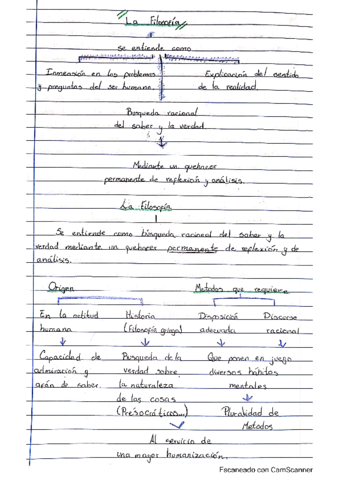 La Filosofía
se entiende como
Inmersión en los problemas
y preguntas del ser humano.
Explicación del sentido
de la realidad.
Búsqueda racional
del saber y la verdad.
Mediante un quehacer
permanente de reflexión y análisis.
La Filosofía
Se entiende como búsqueda racional del saber y la
verdad mediante un quehacer permanente de reflexión y de
análisis.
Origen
Metodos que requiere
En la actitud
humana
Historia
(Filosofía griega)
Disposición
adecuada
Discurso
racional
Capacidad de
admiración y
afán de saber.
Busqueda de la
verdad sobre
la naturaleza
de las cosas
(Presocráticos...)
Que ponen en juego
diversos hábitos
mentales
Pluralidad de
Metodos
Al servicio de
una mayor humanización.
Escaneado con CamScanner